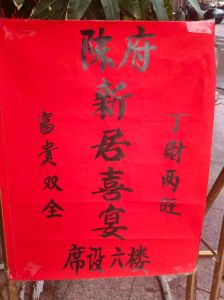 陈府
新居喜宴
丁財两旺
富貴双全
席设六楼